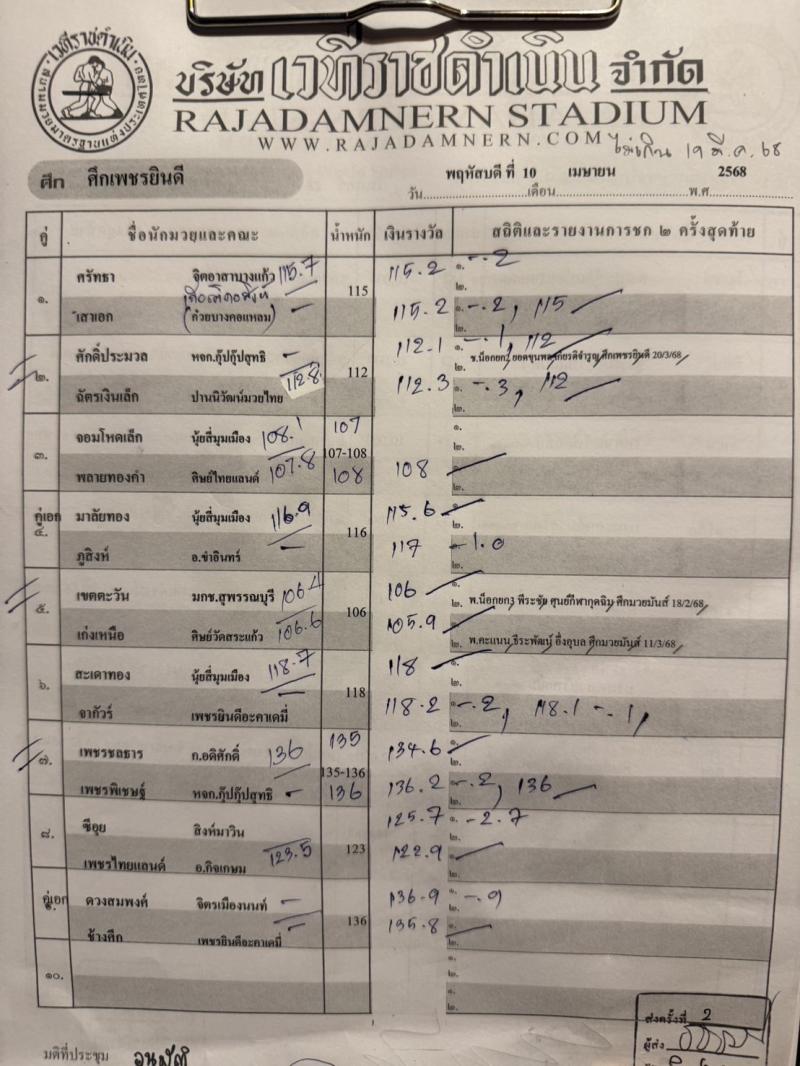 เวทีราชดำเนิน
บริษัท เวทีราชดำเนิน จำกัด
RAJADAMNERN STADIUM
WWW.RAJADAMNERN.COM
ไม่เกิน 19 มี.ค. 68
ศึก ศึกเพชรยินดี
พฤหัสบดี ที่ 10 เมษายน 2568
วัน เดือน พ.ศ
คู่ ชื่อนักมวยและคณะ น้ำหนัก เงินรางวัล สถิติและรายงานการชก ๒ ครั้งสุดท้าย
๑. ศรัทธา จิตอาสาบางแก้ว 115.7 115 115.2 ๑. -.2
๒.
เสาเอก (ก๋วยบางคอแหลม) 115.2 ๑. -.2, 115
๒.
๒. ศักดิ์ประมวล หจก.กุ๊ปกุ๊ปสุทธิ 112 112.1 ๑. -.1, 112
ฉัตรเงินเล็ก ปานนิวัฒน์มวยไทย 112.8 112.3 ๑. -.3, 112
๒.
๓. จอมโหดเล็ก นุ้ยสี่มุมเมือง 108.1 107 ๑.
107-108 ๒.
พลายทองคำ ศิษย์ไทยแลนด์ 107.8 108 108 ๑.
๒.
คู่เอก
๔. มาลัยทอง นุ้ยสี่มุมเมือง 116.9 116 115.6 ๑.
๒.
ภูสิงห์ อ.ขำอินทร์ 117 -1.0
๒.
๕. เขตตะวัน มกช.สุพรรณบุรี 106.4 106 106 ๑.
๒. พ.น็อกยก3 พีระชัย ศูนย์กีฬากุดฉิม ศึกมวยมันส์ 18/2/68
เก่งเหนือ ศิษย์วัดสระแก้ว 106.6 105.9
๒. พ.คะแนน ธีระพัฒน์ อึ่งอุบล ศึกมวยมันส์ 11/3/68
๖. สะเดาทอง นุ้ยสี่มุมเมือง 118.7 118 118 ๑.
๒.
จากัวร์ เพชรยินดีอะคาเดมี่ 118.2 ๑. -.2, 118.1 -.1,
๒.
๗. เพชรชลธาร ก.อดิศักดิ์ 136 135 134.6 ๑.
135-136 ๒.
เพชรพิเชษฐ์ หจก.กุ๊ปกุ๊ปสุทธิ 136 136.2 ๑. -.2, 136
๒.
๘. ซีอุย สิงห์มาวิน 123 125.7 ๑. -2.7
๒.
เพชรไทยแลนด์ อ.กิจเกษม 123.5 122.9 ๑.
๒.
คู่เอก
ดวงสมพงศ์ จิตรเมืองนนท์ 136 136.9 ๑. -.9
๒.
ช้างศึก เพชรยินดีอะคาเดมี่ 135.8 ๑.
๒.
๑๐. ๑.
๒.
๑.
๒.
มติที่ประชุม อนุมัติ
ส่งครั้งที่ 2
ผู้ส่ง